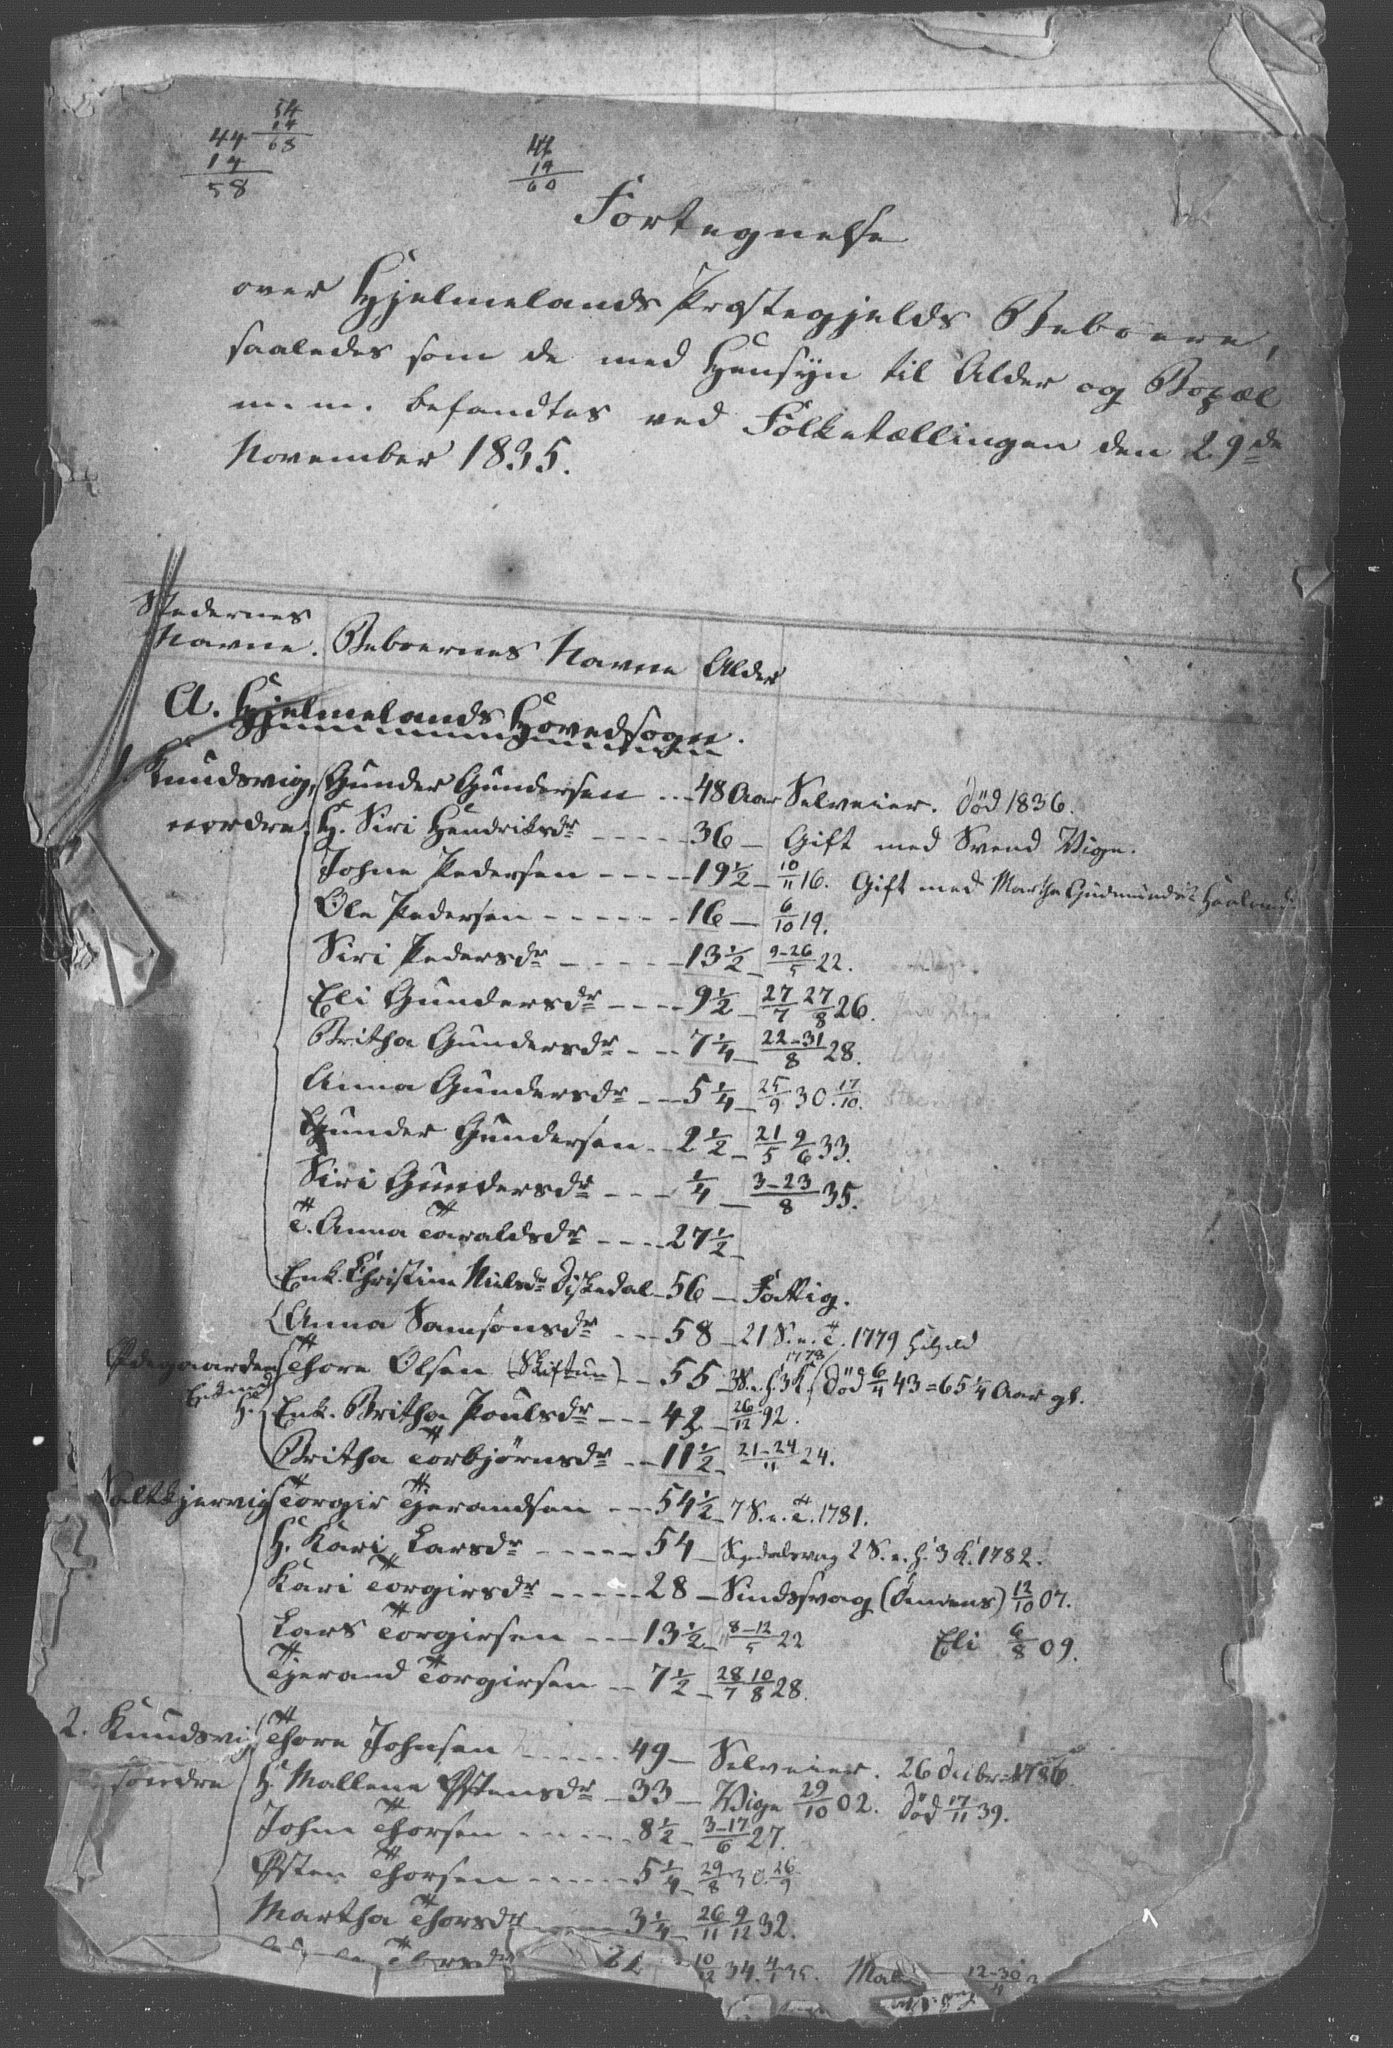 44
14
58
54
14
68
44
14
60
Fortegnelse
over Hjelmelands Præstegjelds Beboere,
saaledes som de med Hensyn til Alder og Bopæl
m. m. befandtes ved Folketællingen den 29de
November 1835.
Stedernes Navne. Beboernes Navne Alder
A. Hjelmelands Hovedsogn.
1. Knudsvig, Gunder Gundersen 48 Aar Selveier. Död 1836.
nordre. H. Siri Hendriksdr 36 Gift med Svend Vige.
Johne Pedersen 19 1/2 10/11 16. Gift med Martha Gudmundsdr
Ole Pedersen 16 6/10 19.
Siri Pedersdr 13 1/2 9-26/5 22.
Eli Gundersdr 9 1/2 27/7 27/8 26.
Britha Gundersdr 7 1/4 22-31/8 28.
Anna Gundersdr 5 1/4 25/9 30. 17/10.
Gunder Gundersen 2 1/2 21/5 9/6 33.
Siri Gundersdr 1/4 3-23/8 35.
T. Anna Taraldsdr 27 1/2
Enk. Christine Nielsdr 56 Fattig.
Anna Samsonsdr 58 21 S. e. T. 1779
Ödegaarden Thore Olsen (Skiftun) 55 1778 Död 6/4 43 = 65 1/4 Aar gl.
H. Enk. Britha Poulsdr 42 26/12 92.
Britha Torbjørnsdr 11 1/2 21-24/11 24.
Saltkjervig Torgir Tjerandsen 54 1/2 7 S. e. T. 1781.
H. Kari Larsdr 54 2 S. e. H. 3 K. 1782.
Kari Torgirsdr 28 Sindssvag 12/10 07.
Lars Torgirsen 13 1/2 8-12/5 22 Eli 6/8 09.
Tjerand Torgirsen 7 1/2 28/7 10/8 28.
2. Knudsvig Thore Johnsen 49 Selveier. 26 Decbr 1786
søndre H. Mallene Østensdr 33 Vige 29/10 02. Död 17/11 39.
Johne Thorsen 8 1/2 3-17/6 27.
Østen Thorsen 5 1/4 29/8 30 26/9
Martha Thorsdr 3 1/4 26/11 9/12 32.
Thorsdr 10/12 34. 4/1 35. 12-30